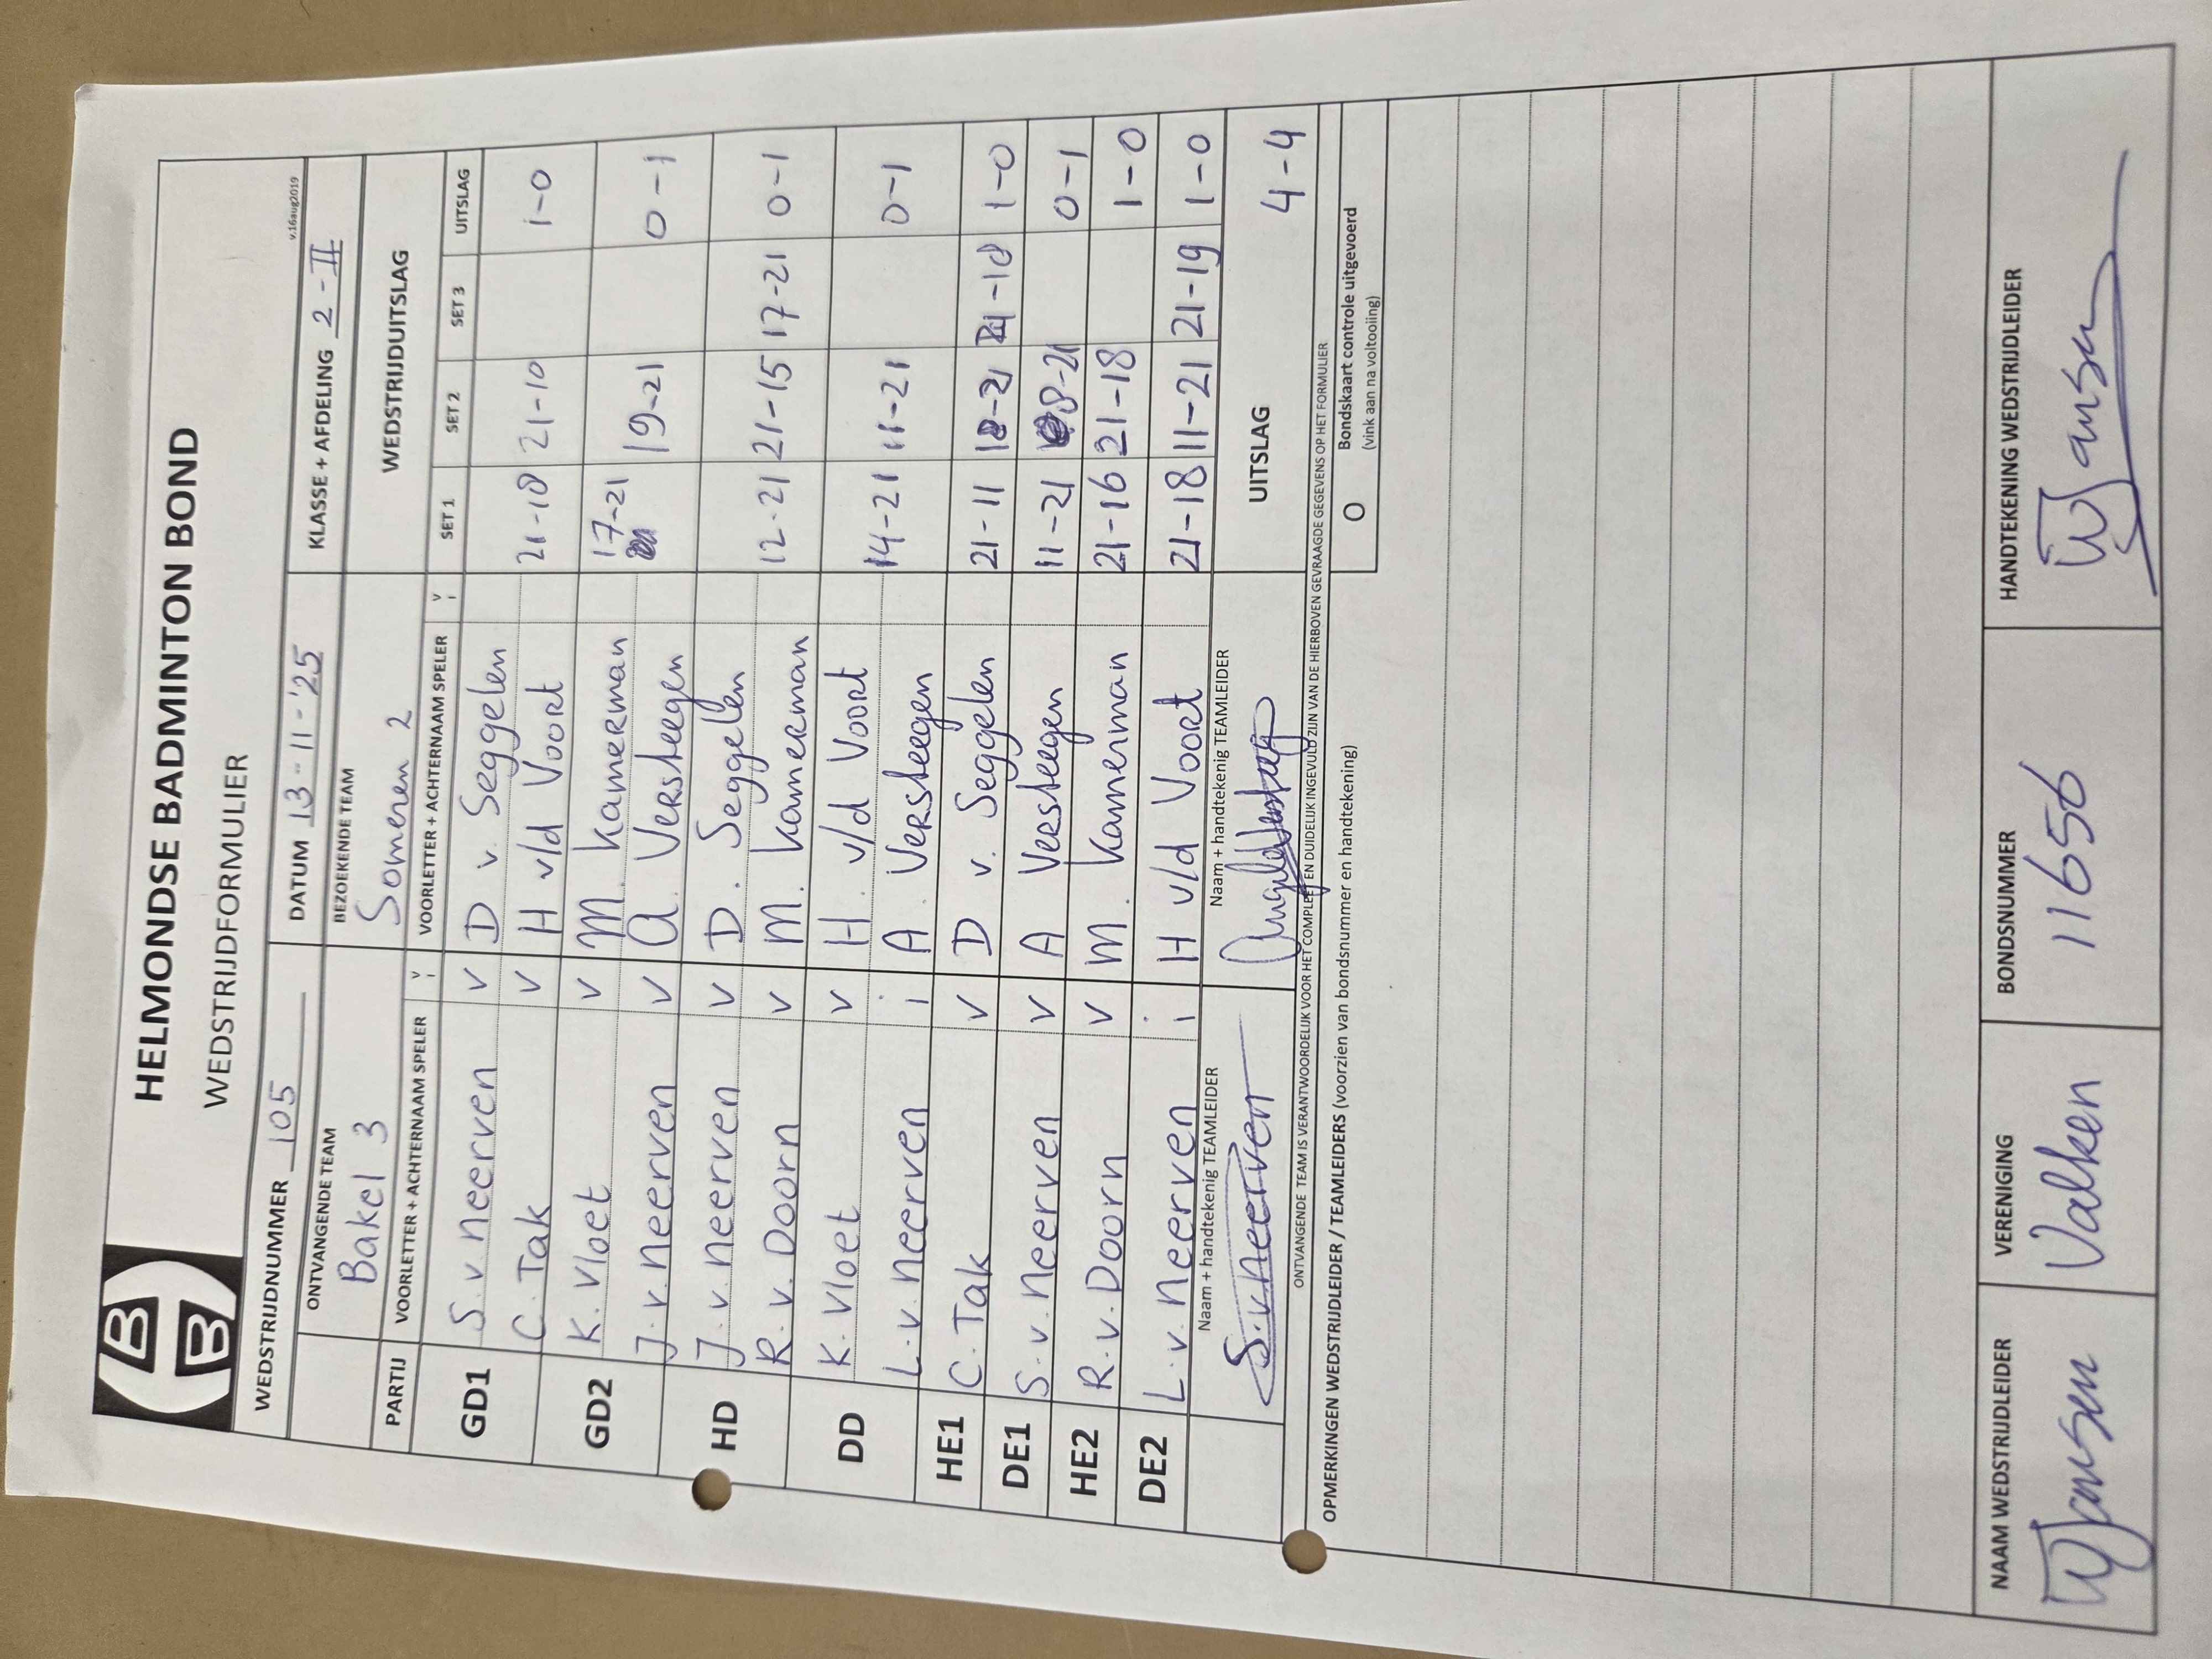 HELMONDSE BADMINTON BOND
WEDSTRIJDFORMULIER
v.16aug2019
WEDSTRIJDNUMMER 105 DATUM 13-11-'25 KLASSE + AFDELING 2-II
ONTVANGENDE TEAM BEZOEKENDE TEAM WEDSTRIJDUITSLAG
Bakel 3 Someren 2
PARTIJ VOORLETTER + ACHTERNAAM SPELER V i VOORLETTER + ACHTERNAAM SPELER V i SET 1 SET 2 SET 3 UITSLAG
GD1 S. v. Neerven v D v. Seggelen
C. Tak v H v/d Voort 21-18 21-10 1-0
GD2 K. Vloet v M. Kamerman 17-21
J. v. Neerven v A. Versteegen 19-21 0-1
HD J. v. Neerven v D. Seggelen
R. v. Doorn v M. Kamerman 12-21 21-15 17-21 0-1
DD K. Vloet v H. v/d Voort
L. v. Neerven i A. Versteegen 14-21 11-21 0-1
HE1 C. Tak v D v. Seggelen 21-11 18-21 21-18 1-0
DE1 S. v. Neerven v A Versteegen 11-21 8-21 0-1
HE2 R. v. Doorn v M. Kamerman 21-16 21-18 1-0
DE2 L. v. Neerven i H v/d Voort 21-18 11-21 21-19 1-0
Naam + handtekenig TEAMLEIDER Naam + handtekenig TEAMLEIDER UITSLAG 4-4
S. v. Neerven
ONTVANGENDE TEAM IS VERANTWOORDELIJK VOOR HET COMPLEET EN DUIDELIJK INGEVULD ZIJN VAN DE HIERBOVEN GEVRAAGDE GEGEVENS OP HET FORMULIER
OPMERKINGEN WEDSTRIJDLEIDER / TEAMLEIDERS (voorzien van bondsnummer en handtekening) O Bondskaart controle uitgevoerd
(vink aan na voltooiing)
NAAM WEDSTRIJDLEIDER VERENIGING BONDSNUMMER HANDTEKENING WEDSTRIJDLEIDER
W Jansen Valken 11656 W Jansen